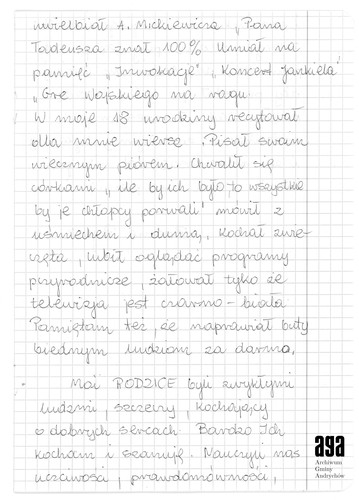 uwielbiał A. Mickiewicza „Pana
Tadeusza znał 100% Umiał na
pamięć „Inwokację" „Koncert Jankiela"
„Grę Wojskiego na rogu
W moje 18 urodziny recytował
dla mnie wiersze. Pisał swoim
wiecznym piórem. Chwalił się
córkami „ile by ich było-to wszystkie
by je chłopcy porwali" mówił z
uśmiechem i dumą. Kochał zwie-
rzęta, lubił oglądać programy
przyrodnicze, żałował tylko że
telewizja jest czarno-biała
Pamiętam też, że naprawiał buty
biednym ludziom za darmo.
Moi RODZICE byli zwykłymi
ludźmi, szczerzy, kochający
o dobrych sercach Bardzo Ich
kocham i szanuję. Nauczyli nas
uczciwości, prawdomówności,
aga
Archiwum
Gminy
Andrychów